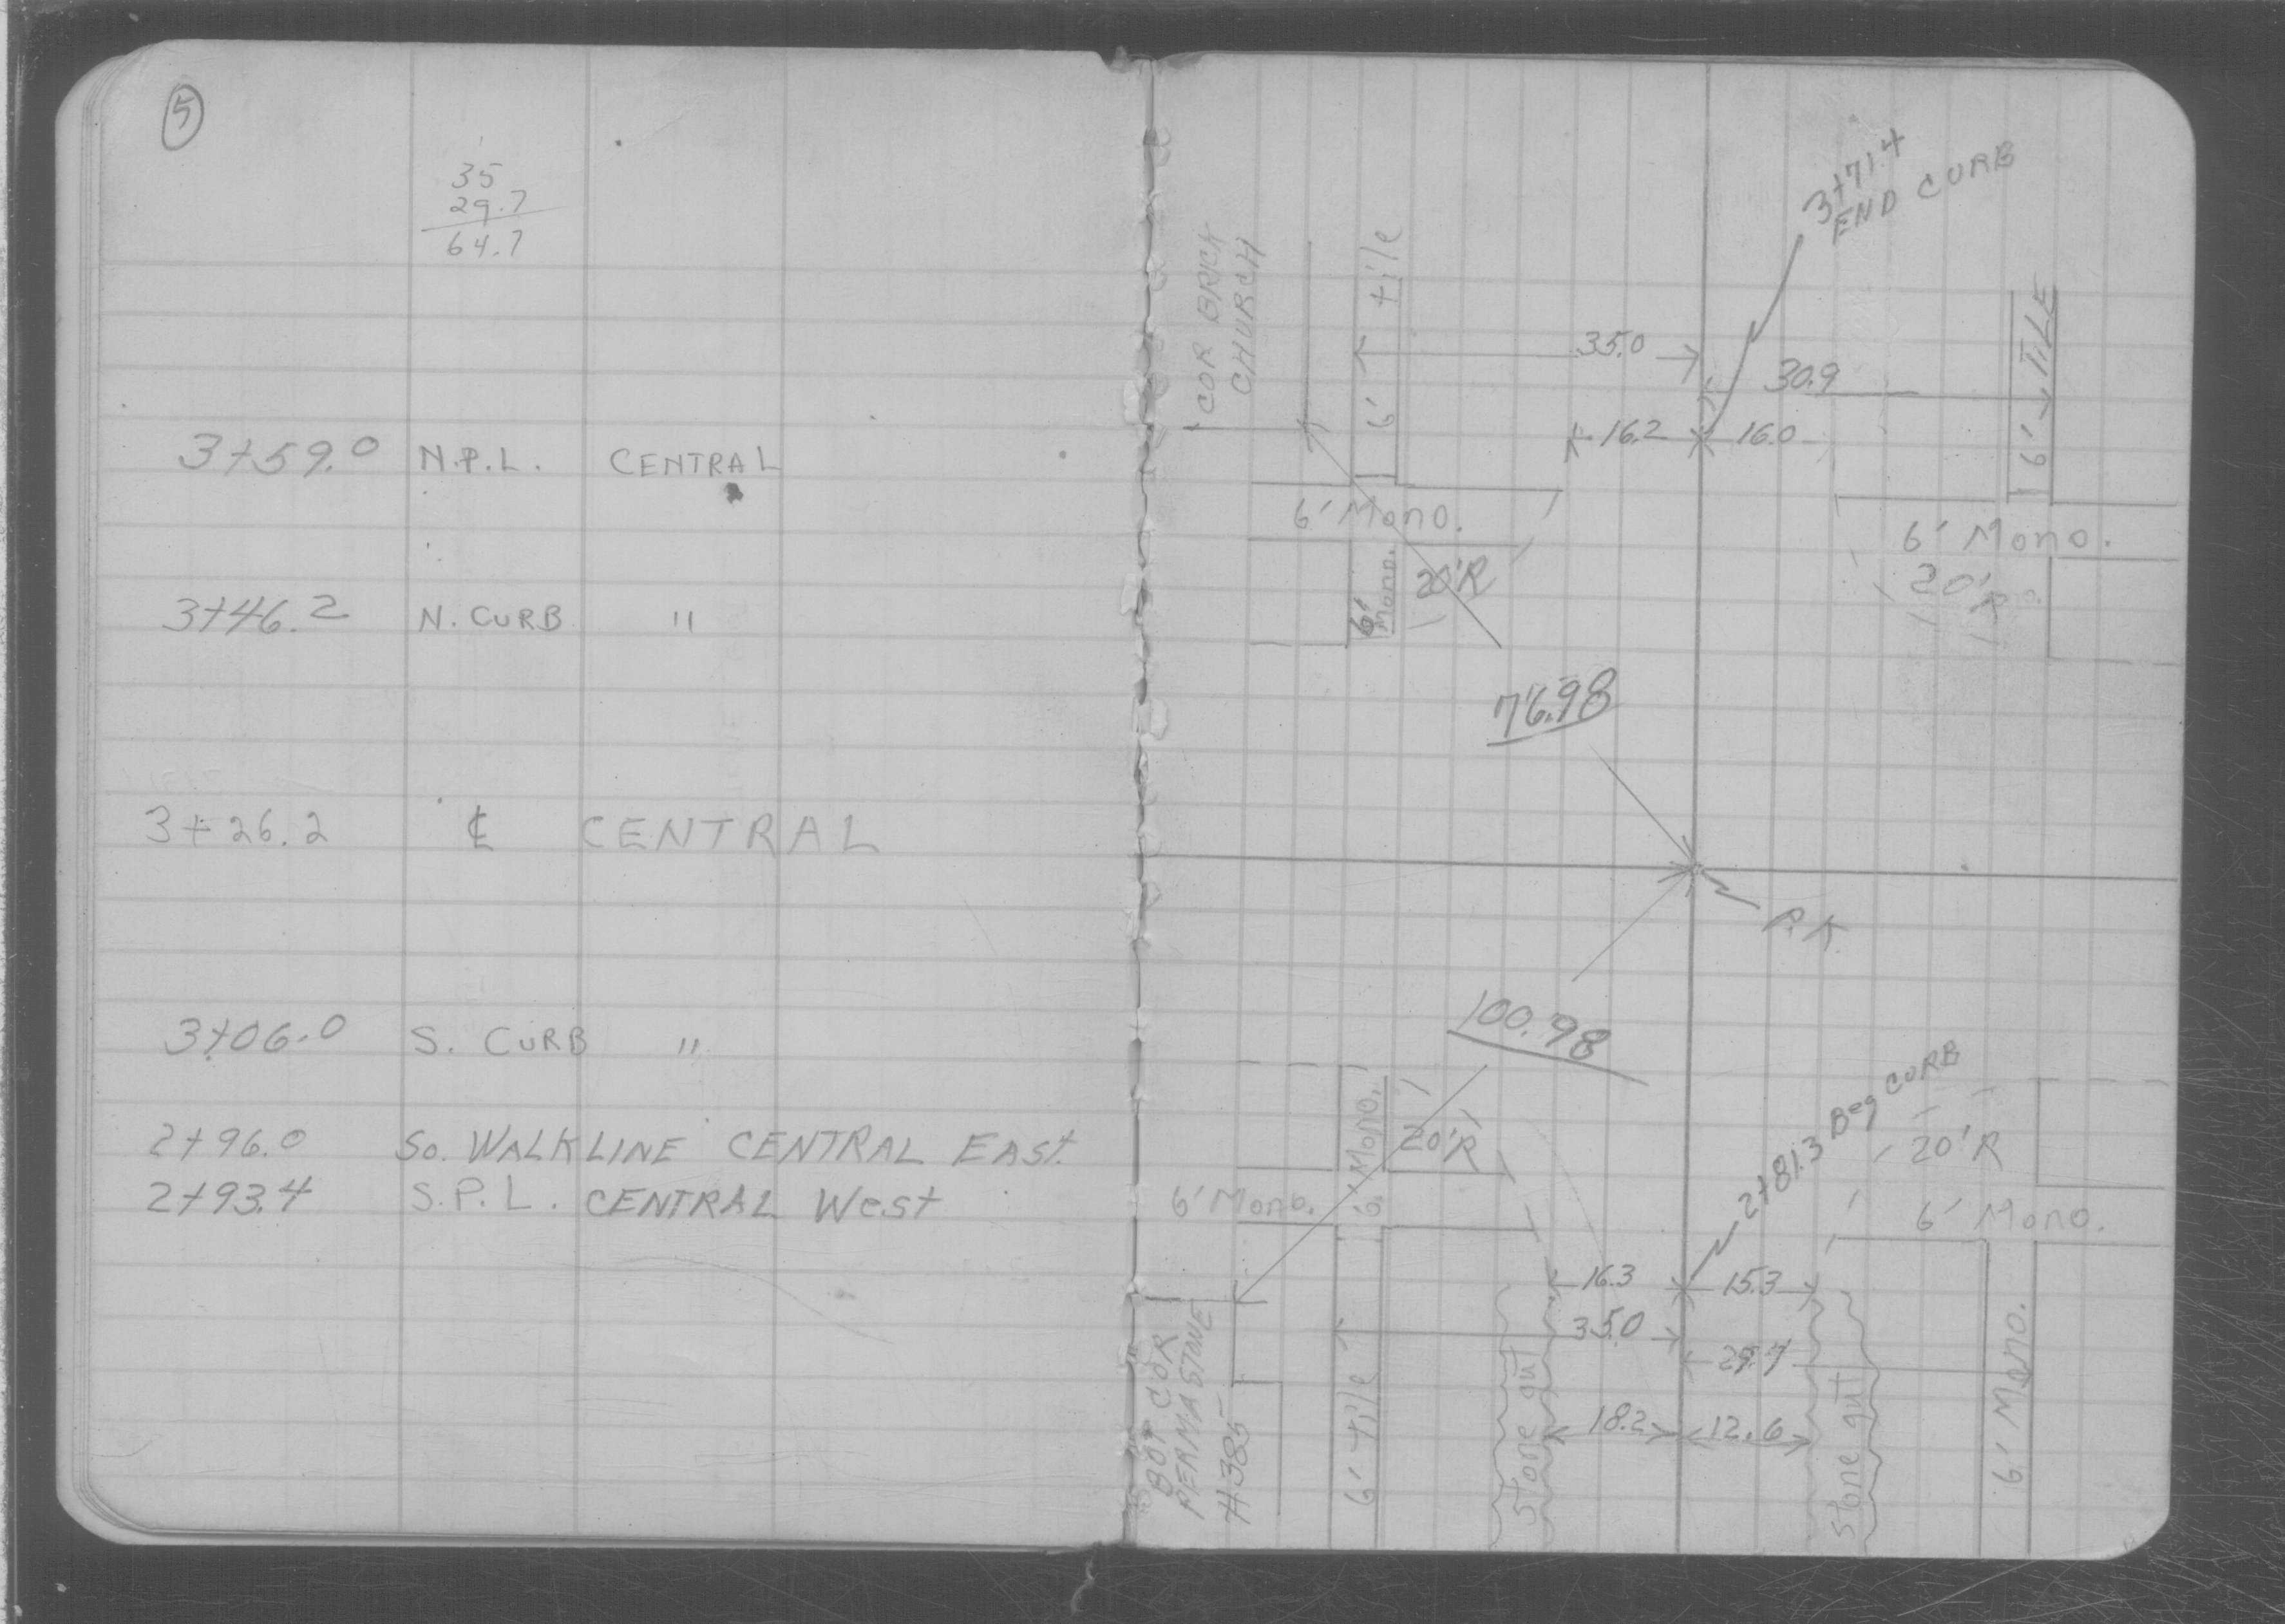 5
35
29.7
64.7
3+59.0 N.P.L. CENTRAL
3+46.2 N. CURB "
3+26.2 ℄ CENTRAL
3+06.0 S. CURB "
2+96.0 So. WALK LINE CENTRAL EAST.
2+93.4 S.P.L. CENTRAL West
3+71.4
END CURB
COR BRICK
CHURCH
6' tile
35.0
30.9
6' TILE
16.2 16.0
6' Mono.
6' Mono.
6' Mono.
20'R
20'R
76.98
P.K.
100.98
2+81.3 Beg CURB
6' Mono.
20'R
20'R
6' Mono.
6' Mono.
16.3 15.3
35.0
29.7
18.2 12.6
BOT COR
PERMASTONE
H 385
6' tile
Stone gut
Stone gut
6' Mono.